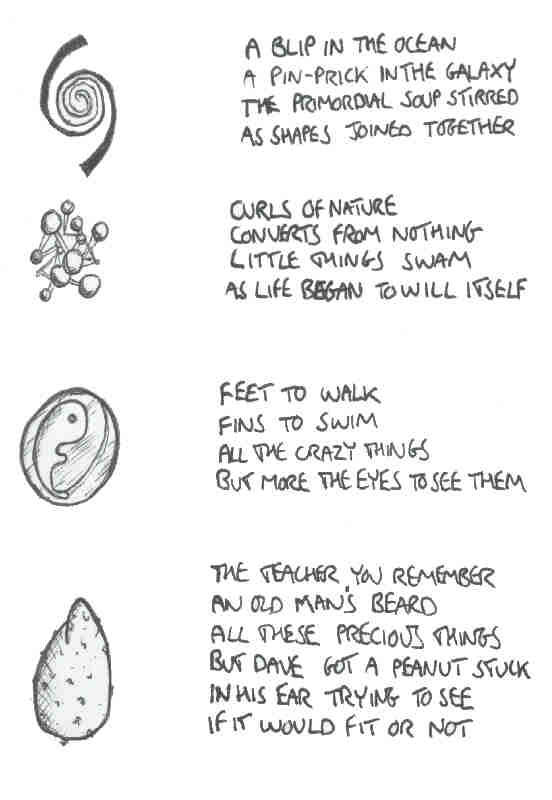 A BLIP IN THE OCEAN
A PIN-PRICK IN THE GALAXY
THE PRIMORDIAL SOUP STIRRED
AS SHAPES JOINED TOGETHER
CURLS OF NATURE
CONVERTS FROM NOTHING
LITTLE THINGS SWAM
AS LIFE BEGAN TO WILL ITSELF
FEET TO WALK
FINS TO SWIM
ALL THE CRAZY THINGS
BUT MORE THE EYES TO SEE THEM
THE TEACHER, YOU REMEMBER
AN OLD MAN'S BEARD
ALL THESE PRECIOUS THINGS
BUT DAVE GOT A PEANUT STUCK
IN HIS EAR TRYING TO SEE
IF IT WOULD FIT OR NOT